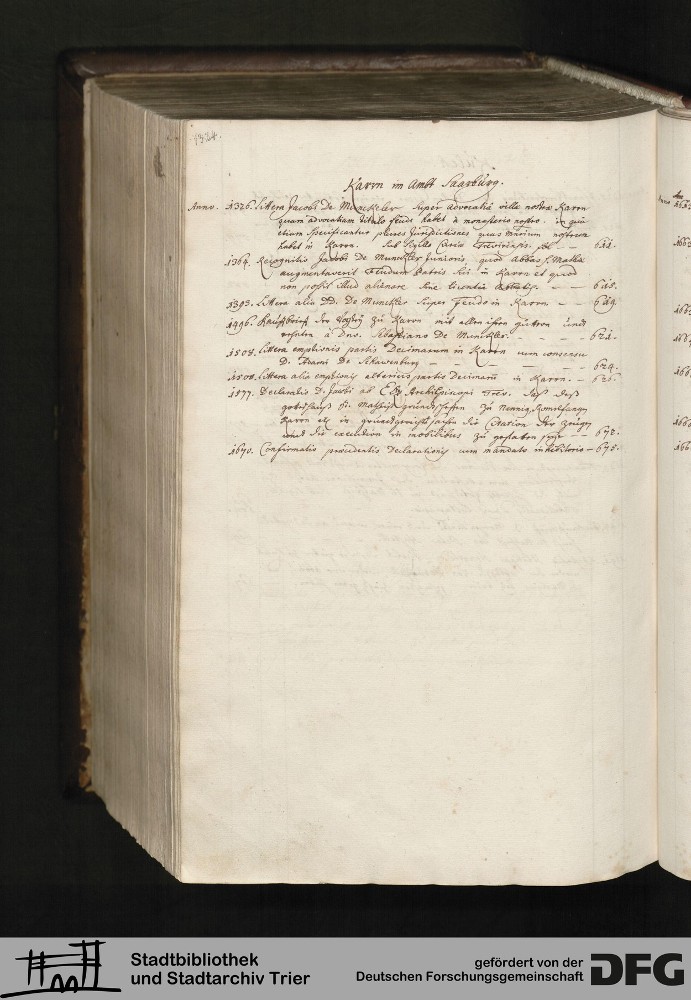 1324.
Karrn im Ambt Saarburg.
Anno. 1326. Littera Jacobi De Munckeler super advocatia villæ nostræ Karrn
quam advocatiam titulo feudi habet à monasterio nostro. in qua
etiam specificantur plures jurisdictiones quas monasterium nostrum
habet in Karrn. sub sigillo Curiæ Trevirensis. — — 611.
1364. Recognitio Jacobi De Munckler Junioris, quod Abbas S. Mathiæ
augmentaverit feudum Patris sui in Karrn et quod
non possit illud alienare sine licentia Abbatis. — — 615.
1393. Littera alia DD. De Munckler super feudo in Karrn. — — 619.
1496. Kauffbrieff der Vogtey zu Karrn mit allen ihren gütern und
à Dno. Sebastiano De Munckler. — — 621.
1508. Littera emptionis partis Decimarum in Karrn cum consensu
D. Adami De Schauwenburg — — — — 624.
1508. Littera alia emptionis alterius partis Decimarum in Karrn. — — 626.
1577. Declaratio D. Jacobi ab Eltz Archiepiscopi Trev. daß deß
gotteshauß St. Mathiæ grundschöffen zu Nennig,
Karrn etc in grundgerichts sachen die Citation der zeugen
und die executiones in mobilibus zu — — 672.
1670. Confirmatio præcedentis Declarationis cum mandato inhibitorio — 675.
Stadtbibliothek
und Stadtarchiv Trier
gefördert von der
Deutschen Forschungsgemeinschaft
DFG